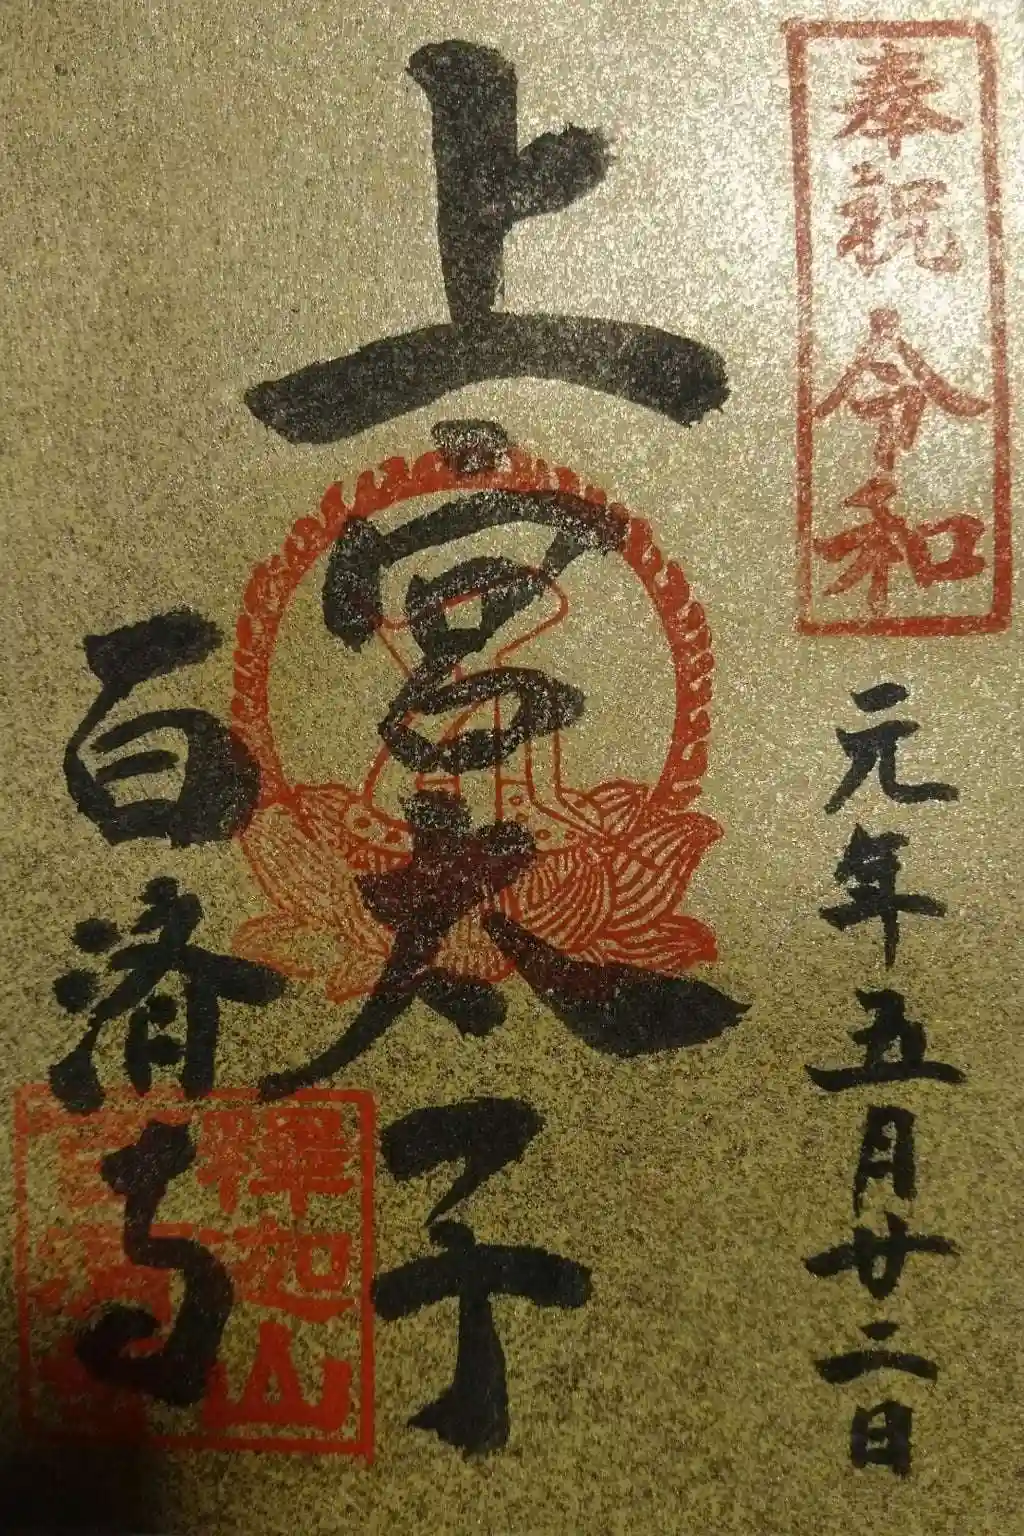 奉祝令和
元年五月廿二日
上宮太子
百済寺
釋迦山
百濟寺